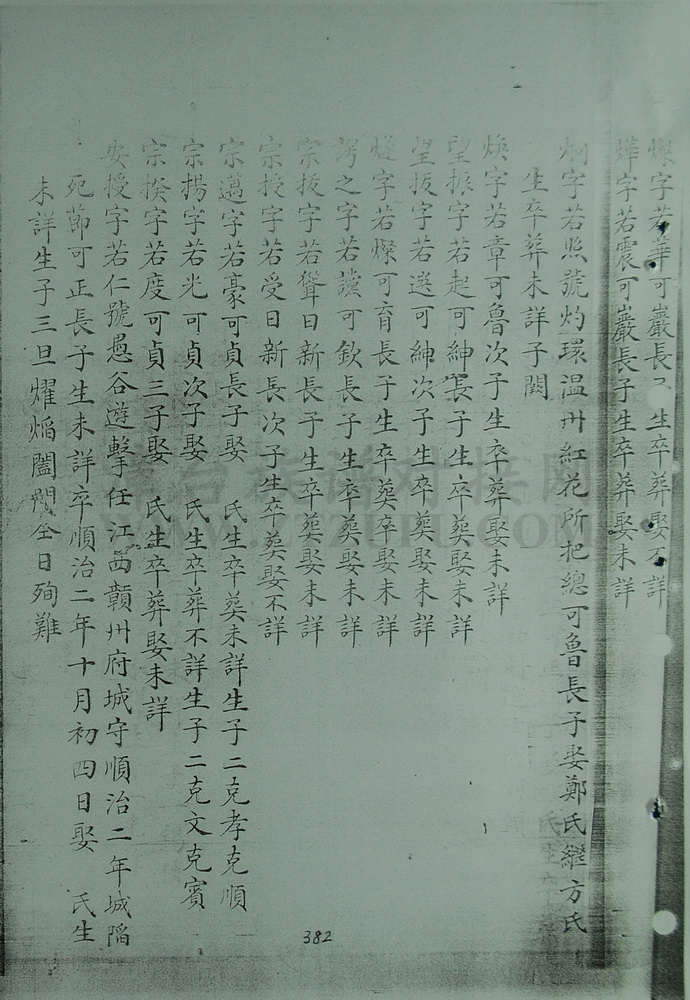 燦字若華可巖長 生卒葬娶不詳
燁字若震可巖長子生卒葬娶未詳
炯字若照號灼環溫州紅花所把總可魯長子娶鄭氏繼方氏
生卒葬未詳子闕
煥字若章可魯次子生卒葬娶未詳
望振字若起可紳長子生卒葬娶未詳
望拔字若選可紳次子生卒葬娶未詳
字若燦可育長子生卒葬娶未詳
之字若讜可欽長子生卒葬娶未詳
宗拔字若聳日新長子生卒葬娶未詳
宗授字若受日新長次子生卒葬娶不詳
宗邁字若豪可貞長子娶 氏生卒葬未詳生子二克孝克順
宗揚字若光可貞次子娶 氏生卒葬不詳生子二克文克賓
宗揆字若度可貞三子娶 氏生卒葬娶未詳
安授字若仁號愚谷遊擊任江西贛州府城守順治二年城陷
死節可正長子生未詳卒順治二年十月初四日娶 氏生
未詳生子三旦燿焰闔門仝日殉難
382